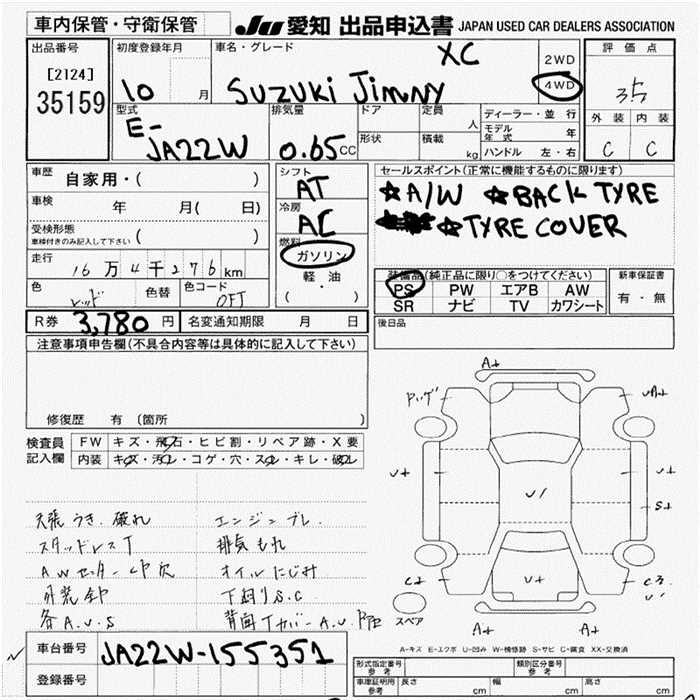 車内保管・守衛保管
JU 愛知 出品申込書 JAPAN USED CAR DEALERS ASSOCIATION
出品番号
[2124]
35159
初度登録年月
10 月
車名・グレード
Suzuki Jimny XC
2WD
4WD
評価点
3.5
外装 内装
C C
型式
E-
JA22W
排気量
0.65 CC
ドア
形状
定員
人
積載
kg
ディーラー・並行
モデル年式 年
ハンドル 左・右
車歴 自家用・( )
車検 年 月( 日)
受検形態 ( )
車検付きのみ記入して下さい
走行 16万4千276km
色 レッド 色替 色コード OFT
R券 3,780 円 名変通知期限 月 日
シフト
AT
冷房
AC
燃料
ガソリン
軽・油
( )
セールスポイント(正常に機能するものに限ります)
☆A/W ☆BACK TYRE
☆TYRE COVER
装備品(純正品に限り○をつけてください)
PS PW エアB AW
SR ナビ TV カワシート
新車保証書
有・無
後日品
注意事項申告欄(不具合内容等は具体的に記入して下さい)
修復歴 有(箇所 )
検査員記入欄
FW キズ・飛石・ヒビ割・リペア跡・X要
内装 キズ・汚れ・コゲ・穴・スレ・キレ・破れ
天張うき.破れ
スタッドレスT
AWセンターCP欠
外装全P
各A.U.S
エンジンブレ.
排気もれ
オイルにじみ
下廻りS.C
背面Tカバー A.U.
A+
U+
U+
S+
U/
U+
C+
C3
U'
A+
A+
スペア
A-キズ E-エクボ U-凹み W-補修跡 S-サビ C-腐食 XX-交換済
車台番号 JA22W-155351
登録番号
形式指定番号 参考
類別区分番号 参考
車庫証明用 参考 長さ cm 幅 cm 高さ cm